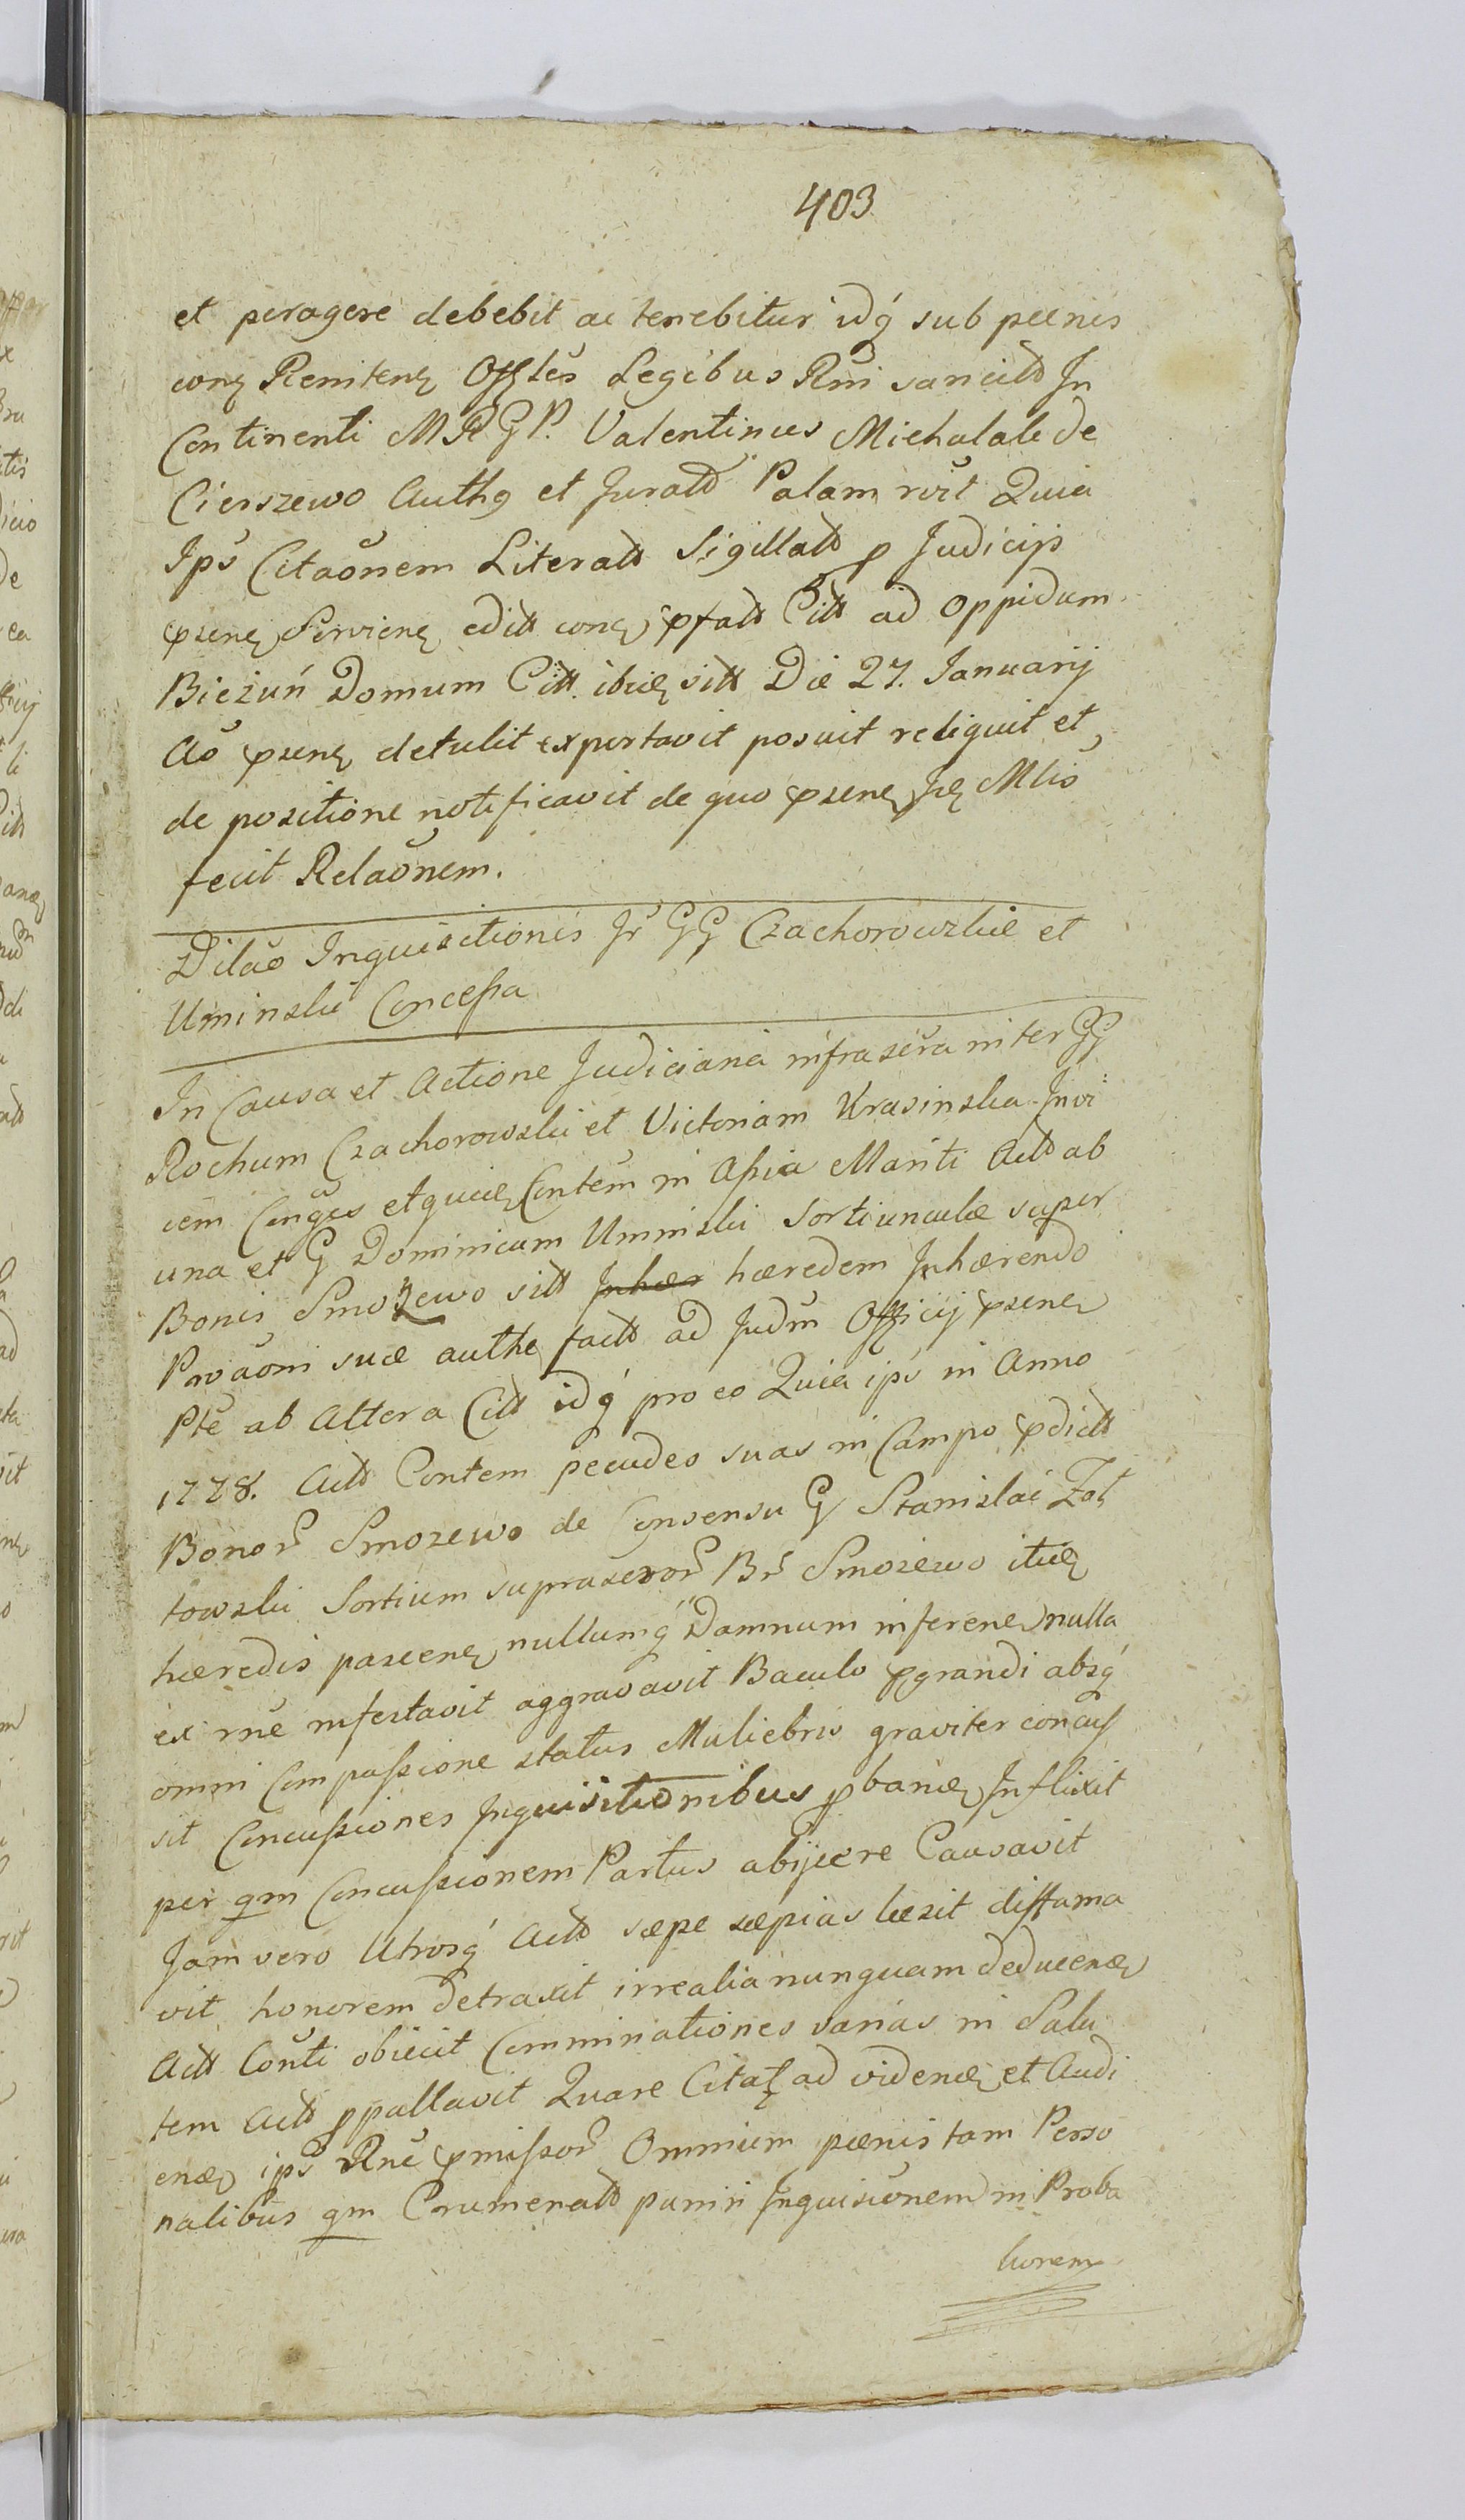 403
et peragere debebit ac tenebitur idq́ sub pœnis
conɇ Renitenɇ Offłes Legibus Rni sancitt In
Continenti MRGP. Valentinus Michalak de
Cierszewo Authɇ et Juratt Palam rvit Quia
Ips Citaõnem Literatt Sigillatt p Judicijs
psenɇ Servienɇ editt conɇ pfatt Citt ad Oppidum
Bieżuń Domum Citt ibidɇ sitt Die 27. Januarij
Aõ psenɇ detulit exportavit posuit reliquit et
de positione notificavit de quo psenɇ Jɇ Mlis
fecit Relaõnem.
Dilaõ Inquisitionis Jr GG Czachorowskie et
Uminski Concessa
In Causa et Actione Judiciaria infrascra inter GG
Rochum Czachorowski et Victoriam Krasinska Invi
cem Conges etquidɇ Contem in Assia Mariti Actt ab
una et G Dominicum Uminski Sortiunculæ super
Bonis Smozewo sitt Inhær hæredem Inhærendo
Provaõni suæ authe factt ad Judm Officij psenɇ
Pte ab Altera Citt idq́ pro eo Quia ips in Anno
1778. Actt Contem pecudes suas in Campo pdictt
Bonor Smozewo de Consensu G Stanislai Zoł
towski Sortium suprascror Br Smozewo itidɇ
hæredis pascenɇ nullumq́ Damnum inferenɇ nulla
ex rne infestavit aggravavit Baculo pgrandi absq́
omni Compassione status Muliebris graviter concus
sit Concussiones Inquisitionibus pbandɇ Inflixit
per qm Concussionem Partus abijcere Causavit
Jam vero Utrosq́ Actt sæpe sæpias læsit diffama
vit honorem detraxit irrealia nunquam deducendɇ
Actt Conti obiecit Comminationes varias in Salu
tem Actt ppallavit Quare Citat ad videndɇ et Audi
endɇ ips Rne pmissor Omnium pœnis tam Perso
nalibus qm Crumenatt puniri Inquisionem in Proba